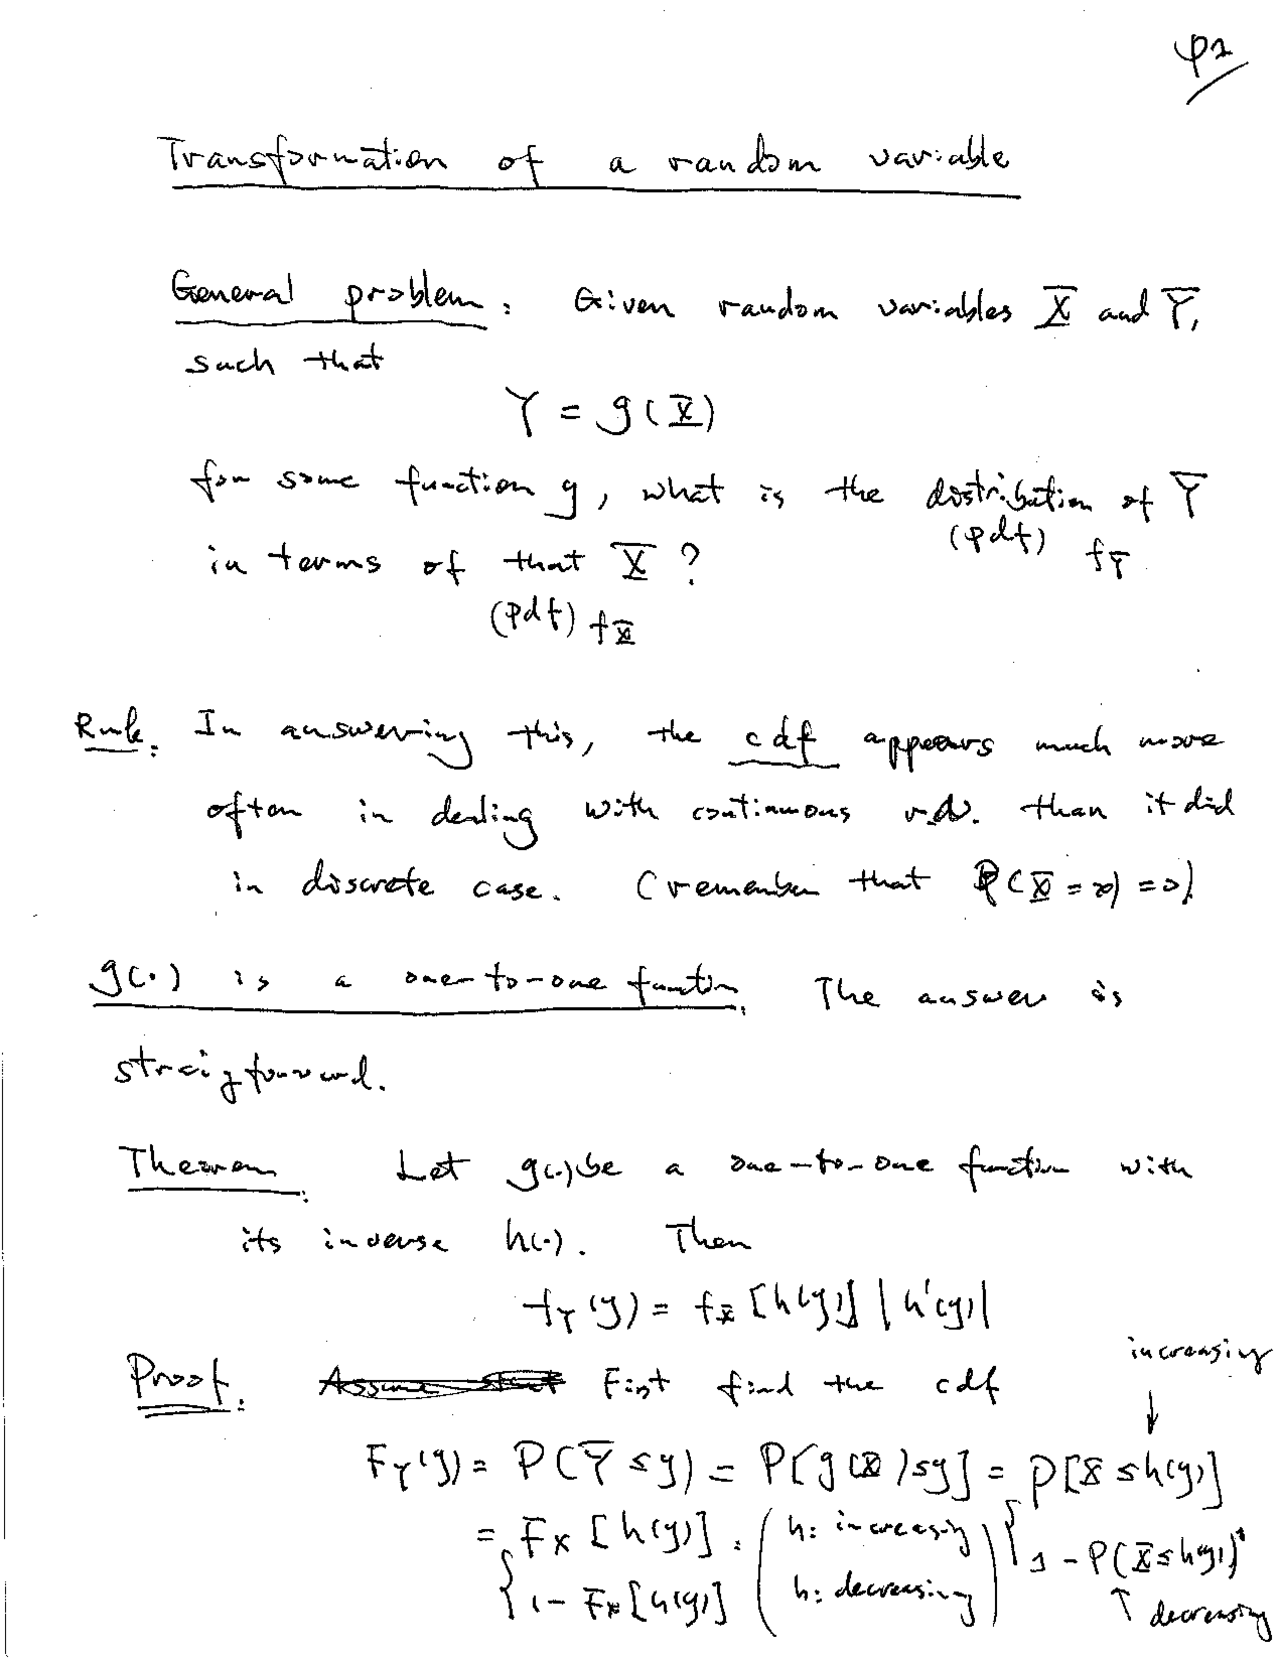 p1
Transformation of a random variable
General problem: Given random variables X and Y,
such that
Y = g(X)
for some function g, what is the distribution of Y
(pdf) f_Y
in terms of that X?
(pdf) f_X
Rmk. In answering this, the cdf appears much more
often in dealing with continuous r.v. than it did
in discrete case. (remember that P(X = x) = 0)
g(·) is a one-to-one function. The answer is
straigforward.
Theorem. Let g(·) be a one-to-one function with
its inverse h(·). Then
f_Y(y) = f_X[h(y)] |h'(y)|
increasing
Proof. First find the cdf
F_Y(y) = P(Y ≤ y) = P[g(X) ≤ y] = { P[X ≤ h(y)]
= { F_X[h(y)]. ( h: increasing 1 - P(X ≤ h(y))
1 - F_X[h(y)] h: decreasing ) ↑ decreasing